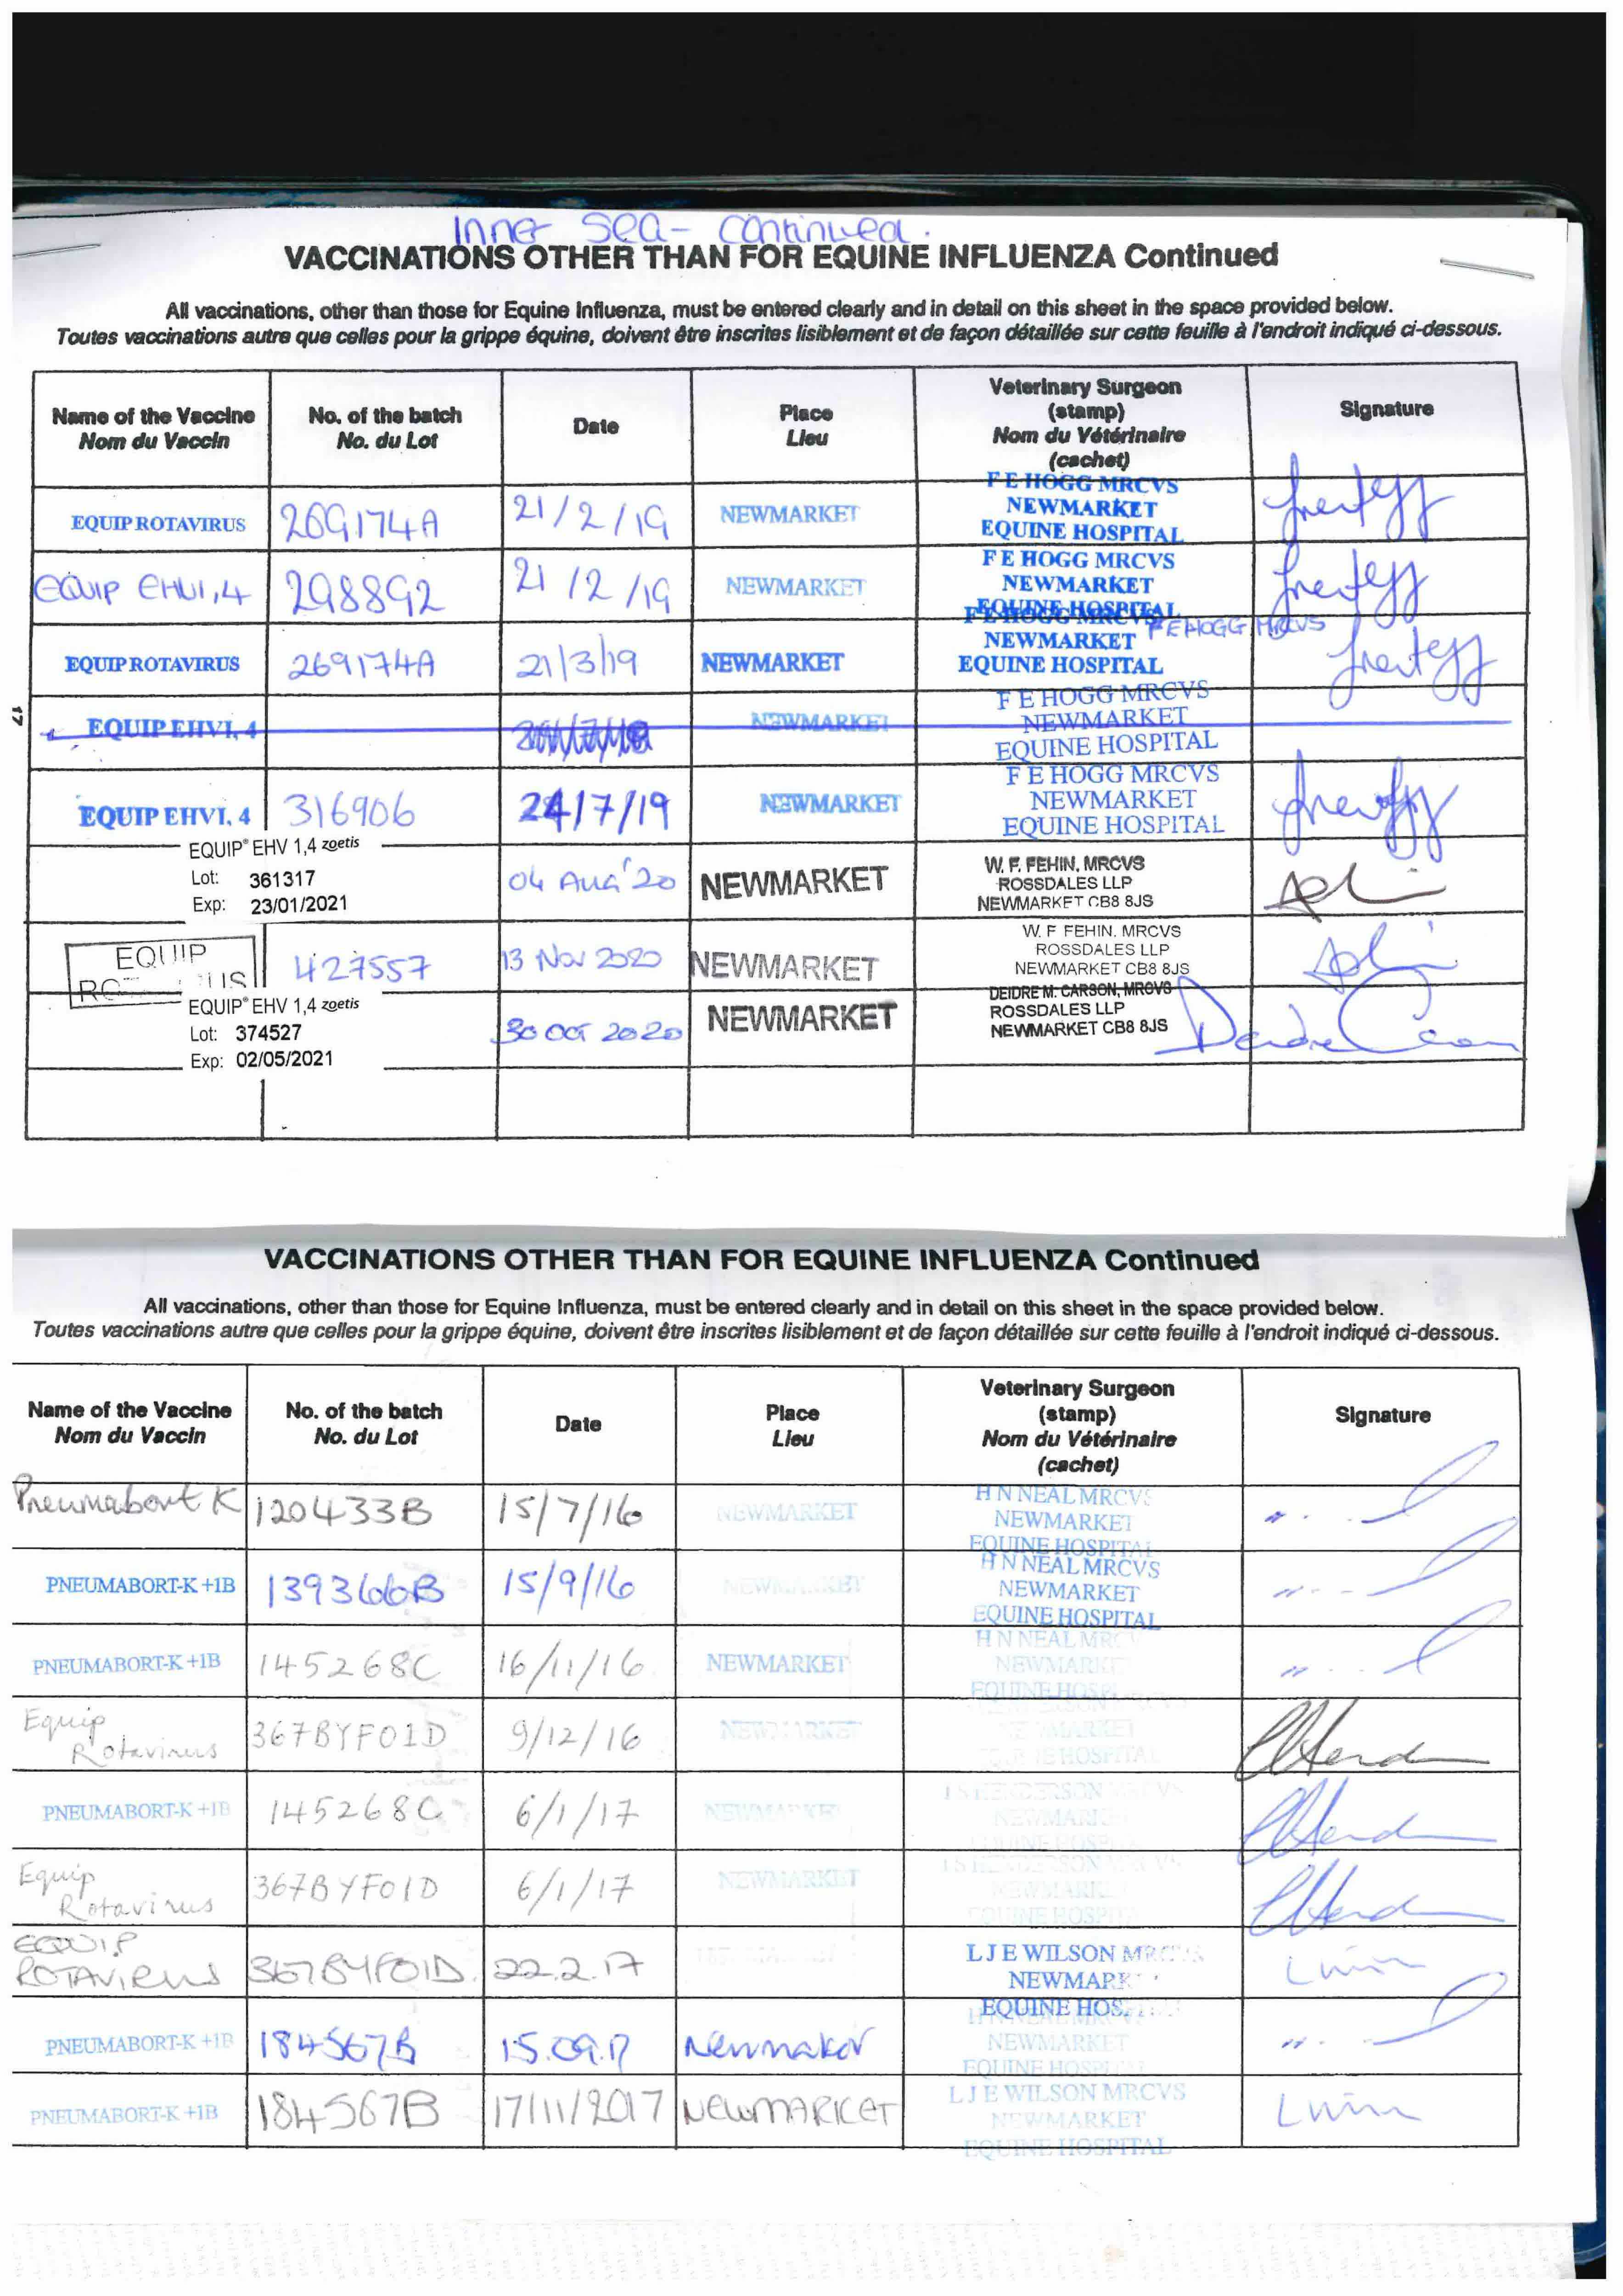 Inner Sea - continued.
VACCINATIONS OTHER THAN FOR EQUINE INFLUENZA Continued
All vaccinations, other than those for Equine Influenza, must be entered clearly and in detail on this sheet in the space provided below.
Toutes vaccinations autre que celles pour la grippe équine, doivent être inscrites lisiblement et de façon détaillée sur cette feuille à l'endroit indiqué ci-dessous.
Name of the Vaccine
Nom du Vaccin
No. of the batch
No. du Lot
Date
Place
Lieu
Veterinary Surgeon
(stamp)
Nom du Vétérinaire
(cachet)
Signature
EQUIP ROTAVIRUS 269174A 21/2/19 NEWMARKET
F E HOGG MRCVS
NEWMARKET
EQUINE HOSPITAL
EQUIP EHV1,4 298892 21/2/19 NEWMARKET
F E HOGG MRCVS
NEWMARKET
EQUINE HOSPITAL
EQUIP ROTAVIRUS 269174A 21/3/19 NEWMARKET
F E HOGG MRCVS
NEWMARKET F E HOGG MRCVS
EQUINE HOSPITAL
17
EQUIP EHV1, 4 NEWMARKET
F E HOGG MRCVS
NEWMARKET
EQUINE HOSPITAL
EQUIP EHV1, 4 316906 24/7/19 NEWMARKET
F E HOGG MRCVS
NEWMARKET
EQUINE HOSPITAL
EQUIP® EHV 1,4 zoetis
Lot: 361317
Exp: 23/01/2021
04 Aug '20 NEWMARKET
W. F. FEHIN, MRCVS
ROSSDALES LLP
NEWMARKET CB8 8JS
EQUIP
427557 13 Nov 2020 NEWMARKET
W. F. FEHIN, MRCVS
ROSSDALES LLP
NEWMARKET CB8 8JS
EQUIP® EHV 1,4 zoetis
Lot: 374527
Exp: 02/05/2021
30 OCT 2020 NEWMARKET
DEIDRE M. CARSON, MRCVS
ROSSDALES LLP
NEWMARKET CB8 8JS
VACCINATIONS OTHER THAN FOR EQUINE INFLUENZA Continued
All vaccinations, other than those for Equine Influenza, must be entered clearly and in detail on this sheet in the space provided below.
Toutes vaccinations autre que celles pour la grippe équine, doivent être inscrites lisiblement et de façon détaillée sur cette feuille à l'endroit indiqué ci-dessous.
Name of the Vaccine
Nom du Vaccin
No. of the batch
No. du Lot
Date
Place
Lieu
Veterinary Surgeon
(stamp)
Nom du Vétérinaire
(cachet)
Signature
Pneumabort K 120433B 15/7/16 NEWMARKET
H N NEAL MRCVS
NEWMARKET
EQUINE HOSPITAL
PNEUMABORT-K +1B 139366B 15/9/16 NEWMARKET
H N NEAL MRCVS
NEWMARKET
EQUINE HOSPITAL
PNEUMABORT-K +1B 145268C 16/11/16 NEWMARKET
H N NEAL
NEWMARKET
EQUINE
Equip
Rotavirus
367BYF01D 9/12/16 NEWMARKET
NEWMARKET
HOSPITAL
PNEUMABORT-K +1B 145268C 6/1/17 NEWMARKET
Equip
Rotavirus
367BYF01D 6/1/17 NEWMARKET
EQUIP
ROTAVIRUS
367BYF01D 22.2.17
L J E WILSON MRCVS
NEWMARKET
EQUINE
PNEUMABORT-K +1B 184567B 15.09.17 Newmarket
NEWMARKET
EQUINE
PNEUMABORT-K +1B 184567B 17/11/2017 NEWMARKET
L J E WILSON MRCVS
NEWMARKET
EQUINE HOSPITAL